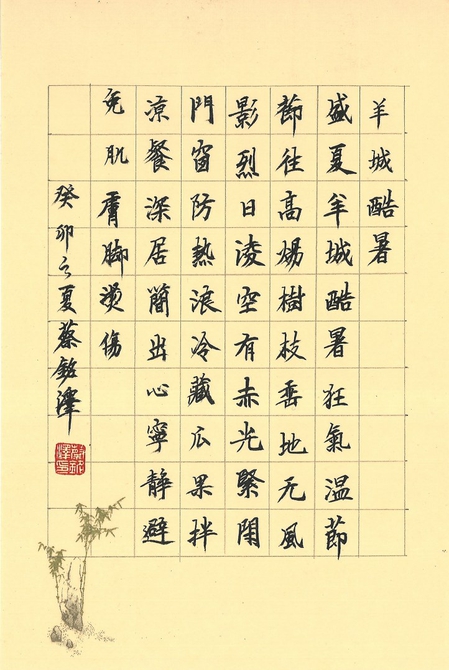 羊城酷暑
盛夏羊城酷暑狂氣温節
節往高煬樹枝垂地无風
影烈日淩空有赤光緊閉
門窗防熱浪冷藏瓜果拌
涼餐深居簡出心寧靜避
免肌膚脚燙傷
癸卯之夏蔡銘澤